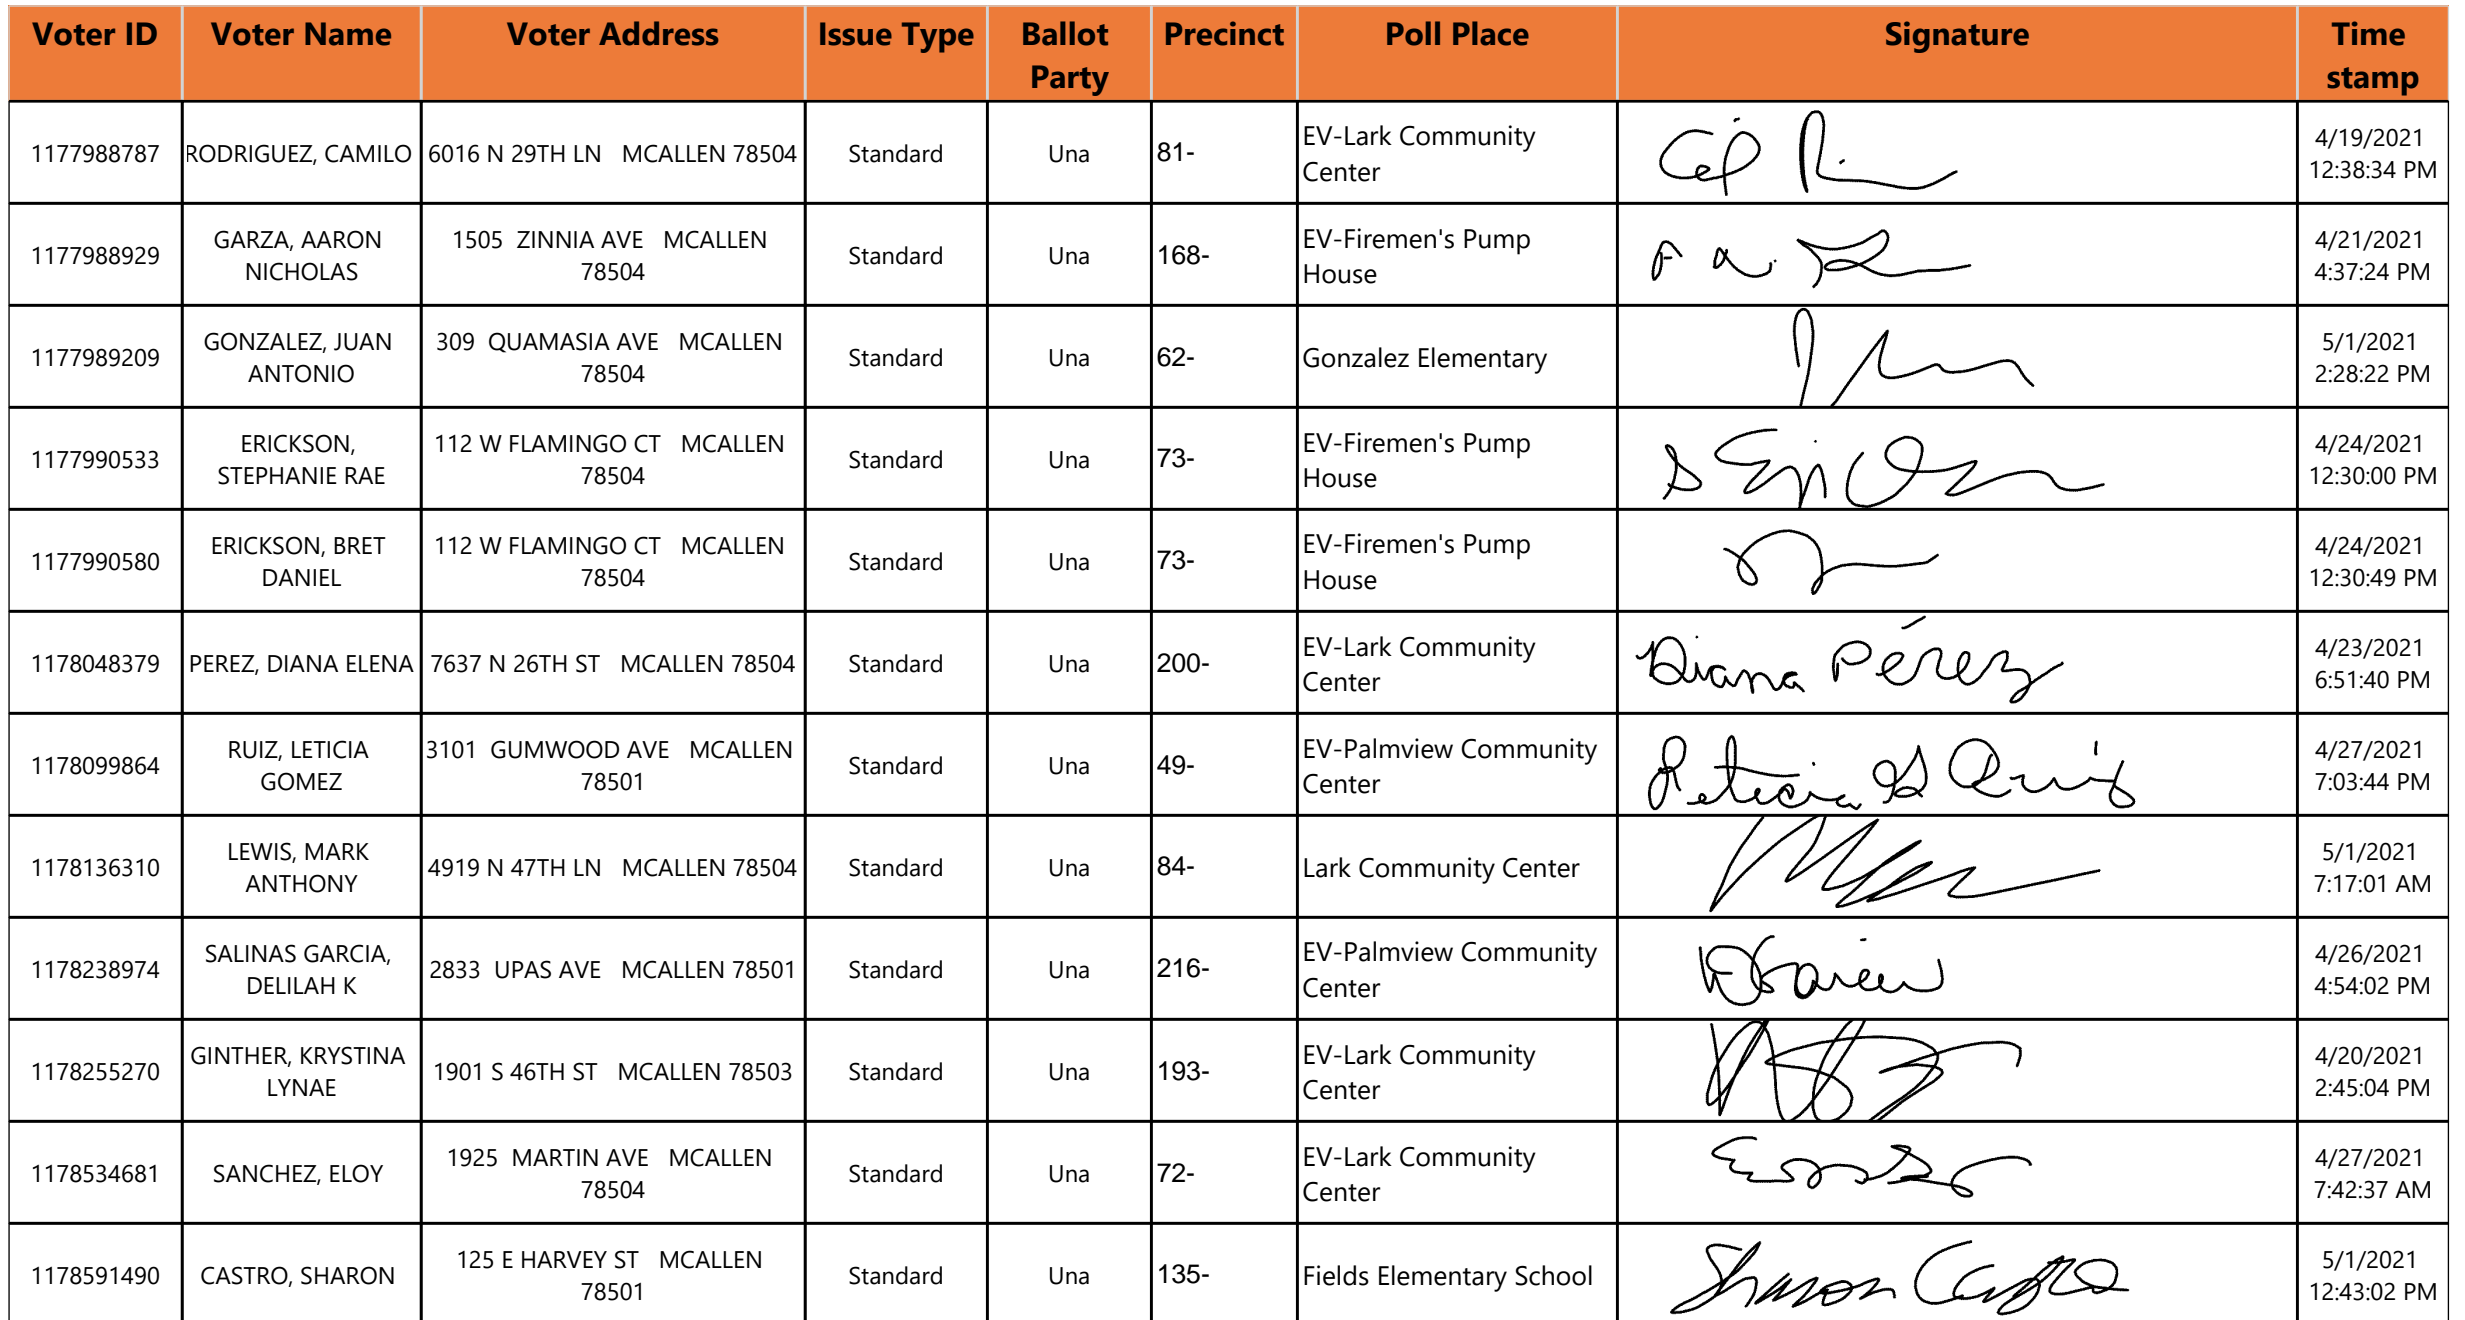 Voter ID Voter Name Voter Address Issue Type Ballot Party Precinct Poll Place Signature Time stamp
1177988787 RODRIGUEZ, CAMILO 6016 N 29TH LN MCALLEN 78504 Standard Una 81- EV-Lark Community Center 4/19/2021 12:38:34 PM
1177988929 GARZA, AARON NICHOLAS 1505 ZINNIA AVE MCALLEN 78504 Standard Una 168- EV-Firemen's Pump House 4/21/2021 4:37:24 PM
1177989209 GONZALEZ, JUAN ANTONIO 309 QUAMASIA AVE MCALLEN 78504 Standard Una 62- Gonzalez Elementary 5/1/2021 2:28:22 PM
1177990533 ERICKSON, STEPHANIE RAE 112 W FLAMINGO CT MCALLEN 78504 Standard Una 73- EV-Firemen's Pump House 4/24/2021 12:30:00 PM
1177990580 ERICKSON, BRET DANIEL 112 W FLAMINGO CT MCALLEN 78504 Standard Una 73- EV-Firemen's Pump House 4/24/2021 12:30:49 PM
1178048379 PEREZ, DIANA ELENA 7637 N 26TH ST MCALLEN 78504 Standard Una 200- EV-Lark Community Center Diana Pérez 4/23/2021 6:51:40 PM
1178099864 RUIZ, LETICIA GOMEZ 3101 GUMWOOD AVE MCALLEN 78501 Standard Una 49- EV-Palmview Community Center Leticia G Ruiz 4/27/2021 7:03:44 PM
1178136310 LEWIS, MARK ANTHONY 4919 N 47TH LN MCALLEN 78504 Standard Una 84- Lark Community Center 5/1/2021 7:17:01 AM
1178238974 SALINAS GARCIA, DELILAH K 2833 UPAS AVE MCALLEN 78501 Standard Una 216- EV-Palmview Community Center 4/26/2021 4:54:02 PM
1178255270 GINTHER, KRYSTINA LYNAE 1901 S 46TH ST MCALLEN 78503 Standard Una 193- EV-Lark Community Center 4/20/2021 2:45:04 PM
1178534681 SANCHEZ, ELOY 1925 MARTIN AVE MCALLEN 78504 Standard Una 72- EV-Lark Community Center 4/27/2021 7:42:37 AM
1178591490 CASTRO, SHARON 125 E HARVEY ST MCALLEN 78501 Standard Una 135- Fields Elementary School Sharon Castro 5/1/2021 12:43:02 PM